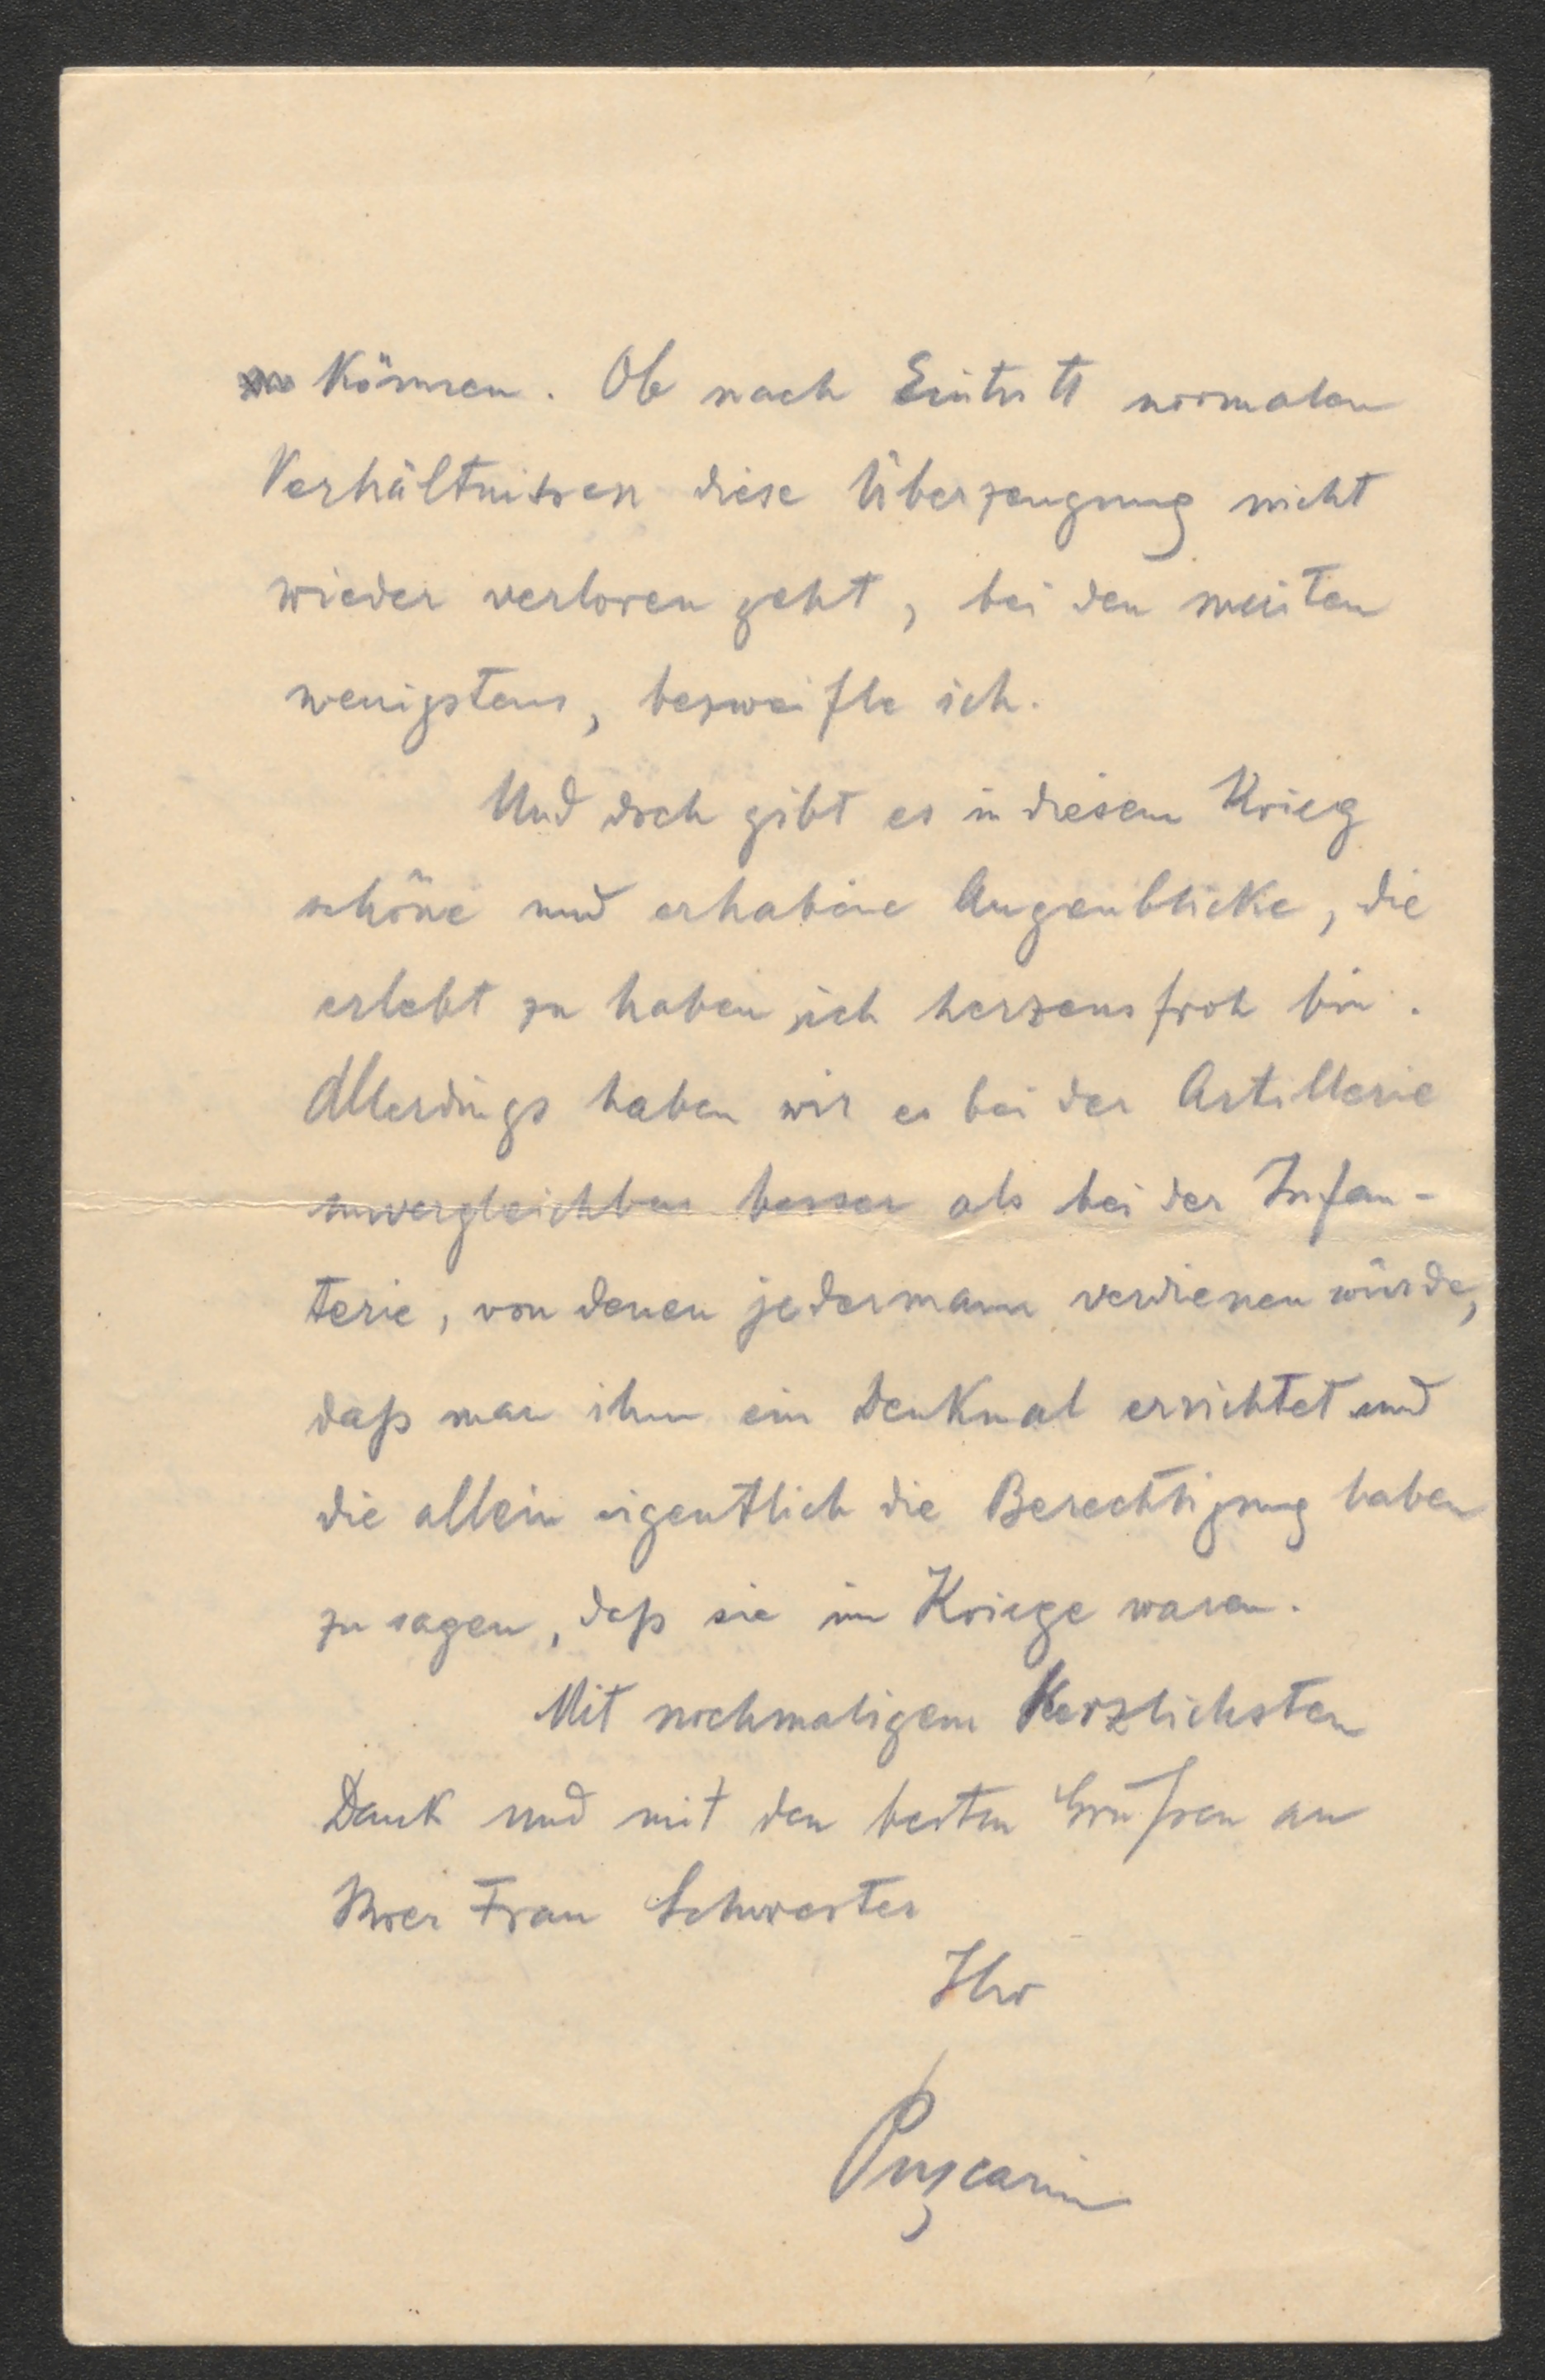 können. Ob nach Eintritt normalen
Verhältnissen diese Überzeugung nicht
wieder verloren geht, bei den meisten
wenigstens, bezweifle ich.
Und doch gibt es in diesem Krieg
schöne und erhabene Augenblicke, die
erlebt zu haben ich herzensfroh bin.
Allerdings haben wir es bei der Artillerie
unvergleichbar besser als bei der Infan-
terie, von denen jedermann verdienen würde,
daß man ihm ein Denkmal errichtet und
die allein eigentlich die Berechtigung haben
zu sagen, daß sie im Kriege waren.
Mit nochmaligem herzlichsten
Dank und mit den besten Grüßen an
Ihrer Frau Schwester
Ihr
Pușcariu